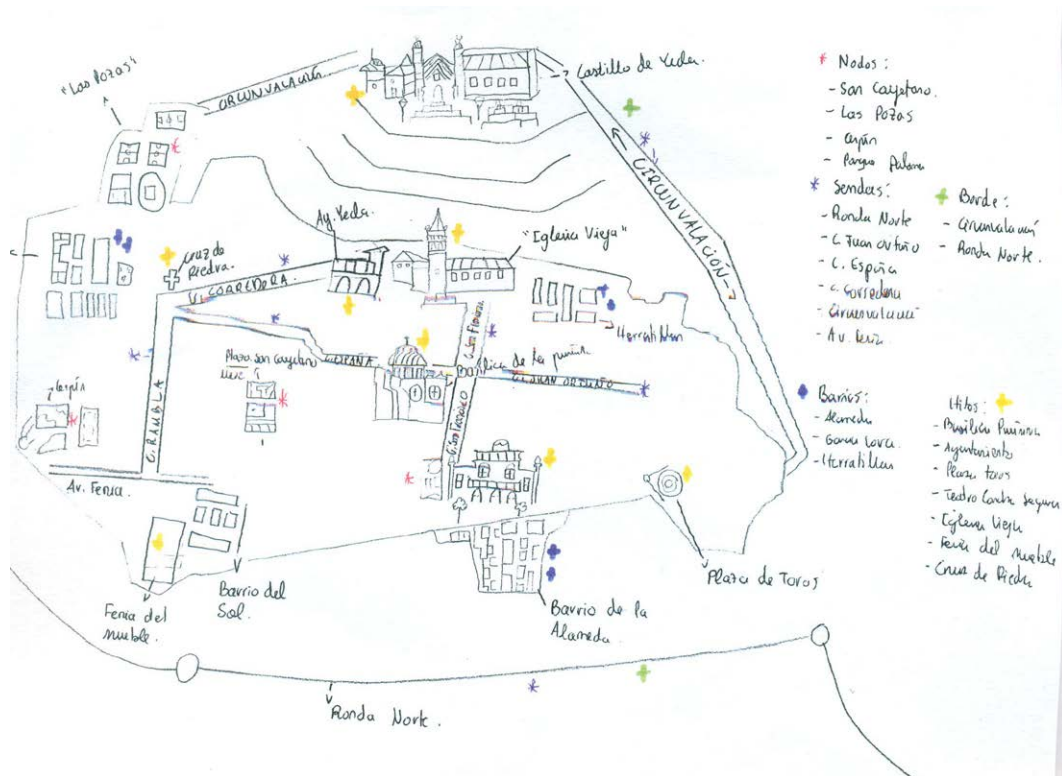 "Las Pozas"
CIRCUNVALACIÓN
Castillo de Yecla.
CIRCUNVALACIÓN
Ay. Yecla.
"Iglesia Vieja"
Cruz de
Piedra.
C/ CORREDERA
Herratillas
C/ ESPAÑA
Plaza San Cayetano
Basílica de la
C/ JUAN ORTUÑO
C/ San Francisco
C/ RAMBLA
Av. Feria.
Feria del
mueble.
Barrio del
Sol.
Barrio de la
Alameda.
Plaza de Toros
Ronda Norte.
Nodos:
- San Cayetano.
- Las Pozas
- Parque
Sendas:
- Ronda Norte
- C. Juan Ortuño
- C. España
- C. Corredera
- Circunvalación
- Av. Feria
Borde:
- Circunvalación
- Ronda Norte.
Barrios:
- Alameda
- García Lorca.
- Herratillas
Hitos:
- Basílica Purísima
- Ayuntamiento
- Plaza toros
- Teatro Concha Segura
- Iglesia Vieja
- Feria del mueble
- Cruz de Piedra